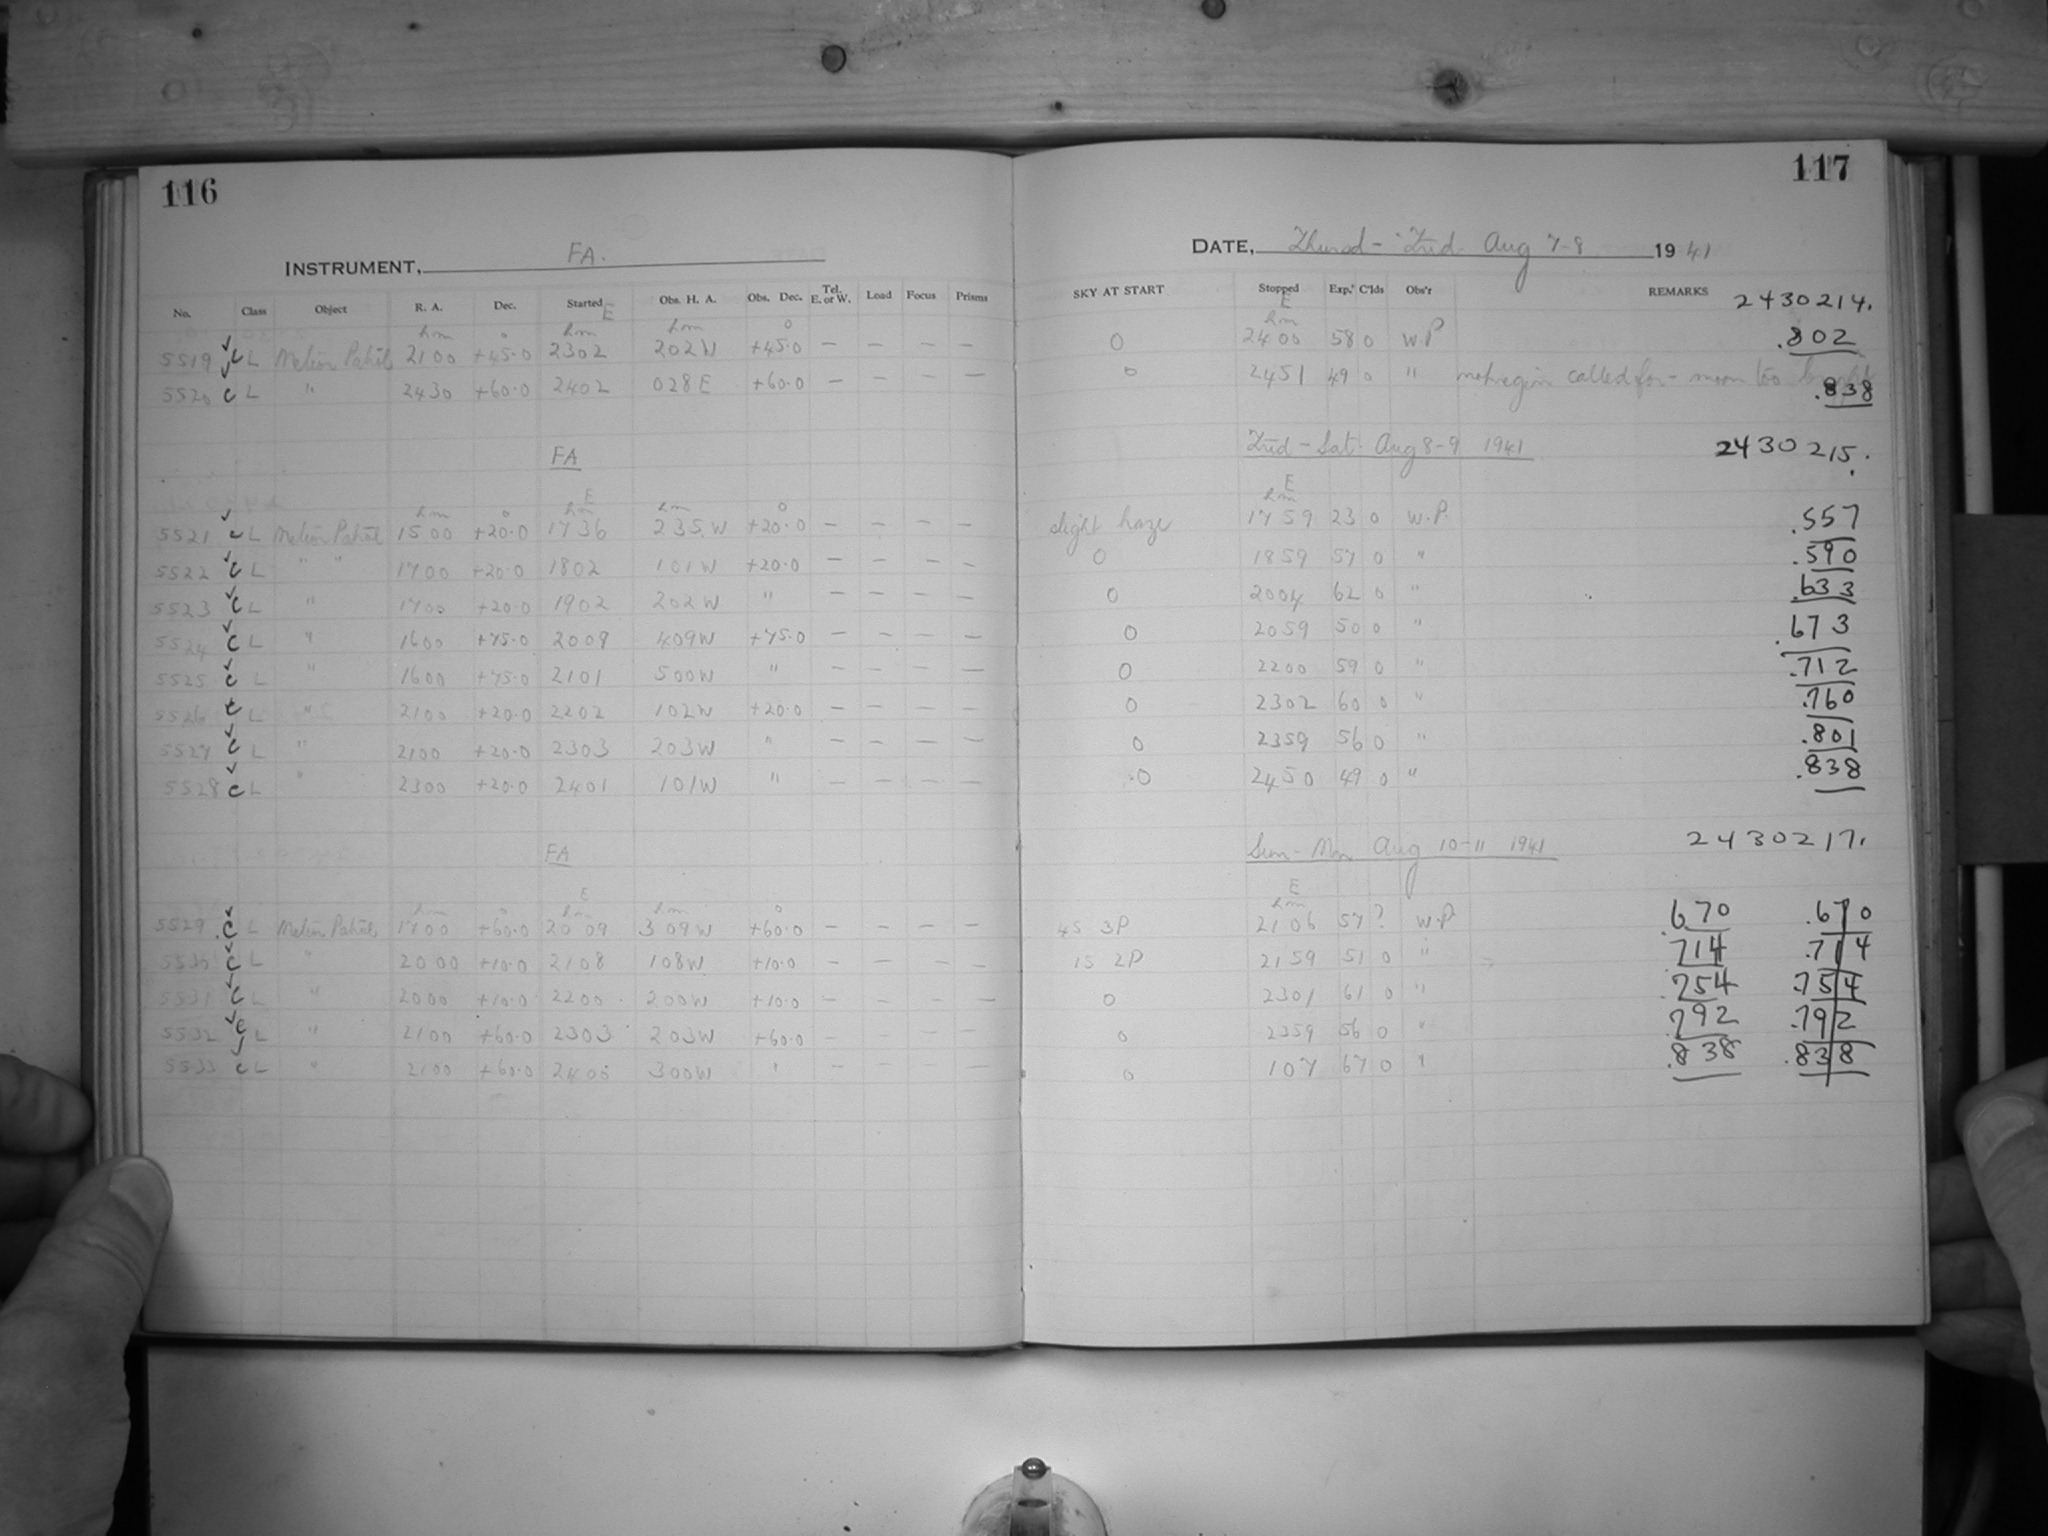 116
INSTRUMENT, FA.
No. Class Object R. A. Dec. Started E Obs. H. A. Obs. Dec. Tel. E. or W. Load Focus Prisms
h m ° h m h m °
5519 c L Meteor Patrol 2100 +45.0 2302 202W +45.0 — — — —
5520 c L " 2430 +60.0 2402 028E +60.0 — — — —
FA
E
h m ° h m h m °
5521 c L Meteor Patrol 1500 +20.0 1736 235W +20.0 — — — —
5522 c L " " 1700 +20.0 1802 101W +20.0 — — — —
5523 c L " 1700 +20.0 1902 202W " — — — —
5524 c L " 1600 +75.0 2009 409W +75.0 — — — —
5525 c L " 1600 +75.0 2101 500W " — — — —
5526 c L " 2100 +20.0 2202 102W +20.0 — — — —
5527 c L " 2100 +20.0 2303 203W " — — — —
5528 c L " 2300 +20.0 2401 101W " — — — —
FA
E
h m ° h m h m °
5529 c L Meteor Patrol 1700 +60.0 2009 309W +60.0 — — — —
5530 c L " 2000 +10.0 2108 108W +10.0 — — — —
5531 c L " 2000 +10.0 2200 200W +10.0 — — — —
5532 c L " 2100 +60.0 2303 203W +60.0 — — — —
5533 c L " 2100 +60.0 2400 300W " — — — —
117
DATE, Thursd - Frid Aug 7-8 1941
SKY AT START Stopped Exp. C'lds Obs'r REMARKS 2430214.
E
h m
0 2400 58 0 W.P .802
0 2451 49 0 " called for - moon too bright .838
Frid - Sat Aug 8-9 1941 2430215.
E
h m
slight haze 1759 23 0 W.P. .557
0 1859 57 0 " .590
0 2004 62 0 " .633
0 2059 50 0 " .673
0 2200 59 0 " .712
0 2302 60 0 " .760
0 2359 56 0 " .801
0 2450 49 0 " .838
Sun - Mon Aug 10-11 1941 2430217.
E
h m
4S 3P 2106 57 ? W.P .670 .670
1S 2P 2159 51 0 " .714 .714
0 2301 61 0 " .754 .754
0 2359 56 0 " .792 .792
0 107 67 0 " .838 .838